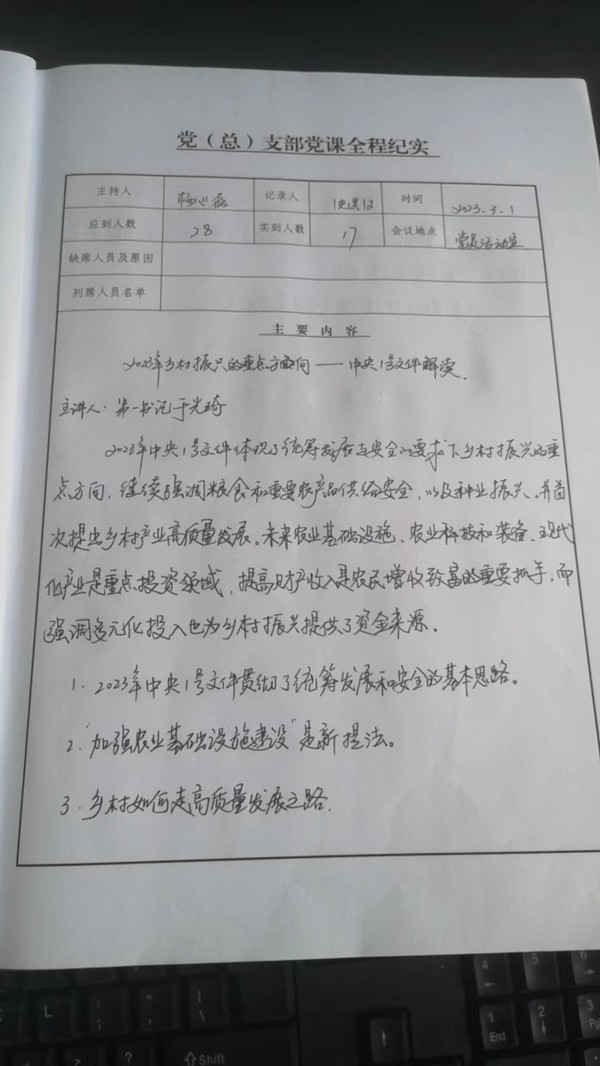 党（总）支部党课全程纪实
主持人 记录人 时间 2023.3.1
应到人数 28 实到人数 17 会议地点 党员活动室
缺席人员及原因
列席人员名单
主要内容
2023年乡村振兴的重点方向——中央1号文件解读.
主讲人：第一书记于光琦
2023年中央1号文件体现了统筹发展与安全的要求下乡村振兴的重
点方向，继续强调粮食和重要农产品供给安全，以及种业振兴。并首
次提出乡村产业高质量发展。未来农业基础设施、农业科技和装备、现代
化产业是重点投资领域，提高财产收入是农民增收致富的重要抓手，而
强调多元化投入也为乡村振兴提供了资金来源。
1．2023年中央1号文件贯彻了统筹发展和安全的基本思路。
2．"加强农业基础设施建设"是新提法。
3．乡村如何走高质量发展之路.
Shift
1
End
2
3
4
5
6